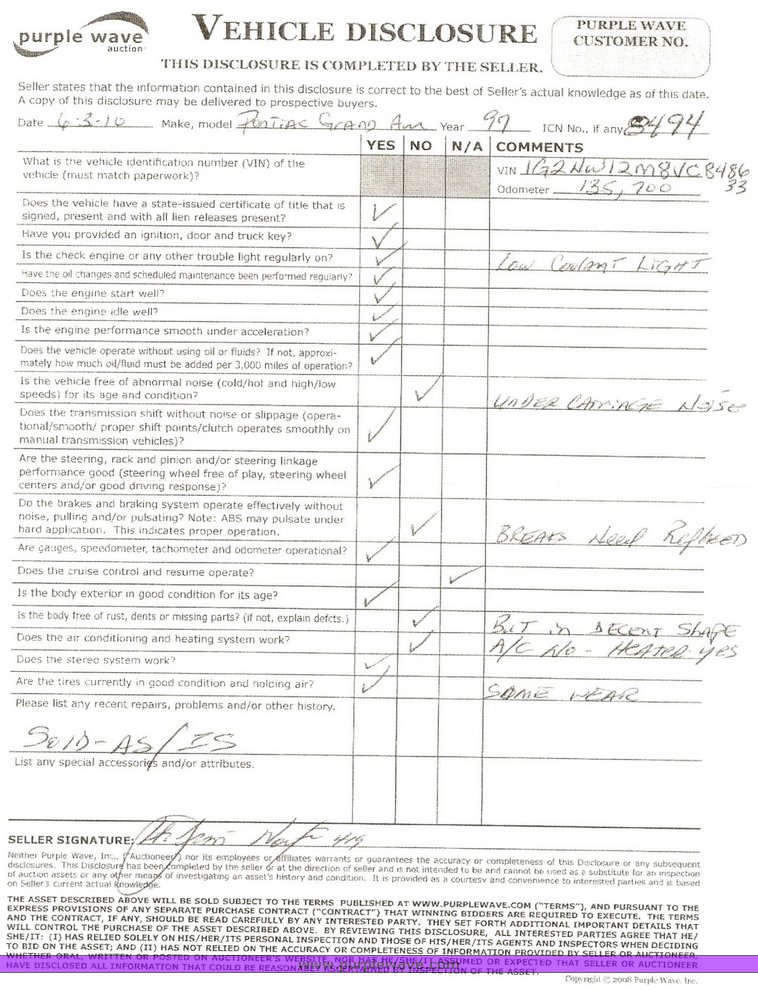 purple wave
auction
VEHICLE DISCLOSURE
THIS DISCLOSURE IS COMPLETED BY THE SELLER.
PURPLE WAVE
CUSTOMER NO.
Seller states that the information contained in this disclosure is correct to the best of Seller's actual knowledge as of this date.
A copy of this disclosure may be delivered to prospective buyers.
Date 6-3-10 Make, model Pontiac Grand Am Year 97 ICN No., if any 3494
YES NO N/A COMMENTS
What is the vehicle identification number (VIN) of the
vehicle (must match paperwork)?
VIN 1G2NW12M8VC8486
33
Odometer 135,700
Does the vehicle have a state-issued certificate of title that is
signed, present and with all lien releases present?
Have you provided an ignition, door and truck key?
Is the check engine or any other trouble light regularly on? Low Coolant Light
Have the oil changes and scheduled maintenance been performed regularly?
Does the engine start well?
Does the engine idle well?
Is the engine performance smooth under acceleration?
Does the vehicle operate without using oil or fluids? If not, approxi-
mately how much oil/fluid must be added per 3,000 miles of operation?
Is the vehicle free of abnormal noise (cold/hot and high/low
speeds) for its age and condition? UNDER CARRIAGE NOISE
Does the transmission shift without noise or slippage (opera-
tional/smooth/ proper shift points/clutch operates smoothly on
manual transmission vehicles)?
Are the steering, rack and pinion and/or steering linkage
performance good (steering wheel free of play, steering wheel
centers and/or good driving response)?
Do the brakes and braking system operate effectively without
noise, pulling and/or pulsating? Note: ABS may pulsate under
hard application. This indicates proper operation. BREAKS Need Replaced
Are gauges, speedometer, tachometer and odometer operational?
Does the cruise control and resume operate?
Is the body exterior in good condition for its age?
Is the body free of rust, dents or missing parts? (if not, explain defcts.) BUT in DECENT SHAPE
Does the air conditioning and heating system work? A/C NO - HEATER yes
Does the stereo system work?
Are the tires currently in good condition and holding air? SOME WEAR
Please list any recent repairs, problems and/or other history.
SOLD-AS/IS
List any special accessories and/or attributes.
SELLER SIGNATURE:
Neither Purple Wave, Inc., ("Auctioneer") nor its employees or affiliates warrants or guarantees the accuracy or completeness of this Disclosure or any subsequent
disclosures. This Disclosure has been completed by the seller or at the direction of seller and is not intended to be and cannot be used as a substitute for an inspection
of auction assets or any other means of investigating an asset's history and condition. It is provided as a courtesy and convenience to interested parties and is based
on Seller's current actual knowledge.
THE ASSET DESCRIBED ABOVE WILL BE SOLD SUBJECT TO THE TERMS PUBLISHED AT WWW.PURPLEWAVE.COM ("TERMS"), AND PURSUANT TO THE
EXPRESS PROVISIONS OF ANY SEPARATE PURCHASE CONTRACT ("CONTRACT") THAT WINNING BIDDERS ARE REQUIRED TO EXECUTE. THE TERMS
AND THE CONTRACT, IF ANY, SHOULD BE READ CAREFULLY BY ANY INTERESTED PARTY. THEY SET FORTH ADDITIONAL IMPORTANT DETAILS THAT
WILL CONTROL THE PURCHASE OF THE ASSET DESCRIBED ABOVE. BY REVIEWING THIS DISCLOSURE, ALL INTERESTED PARTIES AGREE THAT HE/
SHE/IT: (I) HAS RELIED SOLELY ON HIS/HER/ITS PERSONAL INSPECTION AND THOSE OF HIS/HER/ITS AGENTS AND INSPECTORS WHEN DECIDING
TO BID ON THE ASSET; AND (II) HAS NOT RELIED ON THE ACCURACY OR COMPLETENESS OF INFORMATION PROVIDED BY SELLER OR AUCTIONEER,
WHETHER ORAL, WRITTEN OR POSTED ON AUCTIONEER'S WEBSITE, NOR HAS HE/SHE/IT ASSUMED OR EXPECTED THAT SELLER OR AUCTIONEER
HAVE DISCLOSED ALL INFORMATION THAT COULD BE REASONABLY ASCERTAINED BY INSPECTION OF THE ASSET.
www.purplewave.com
Copyright © 2008 Purple Wave, Inc.